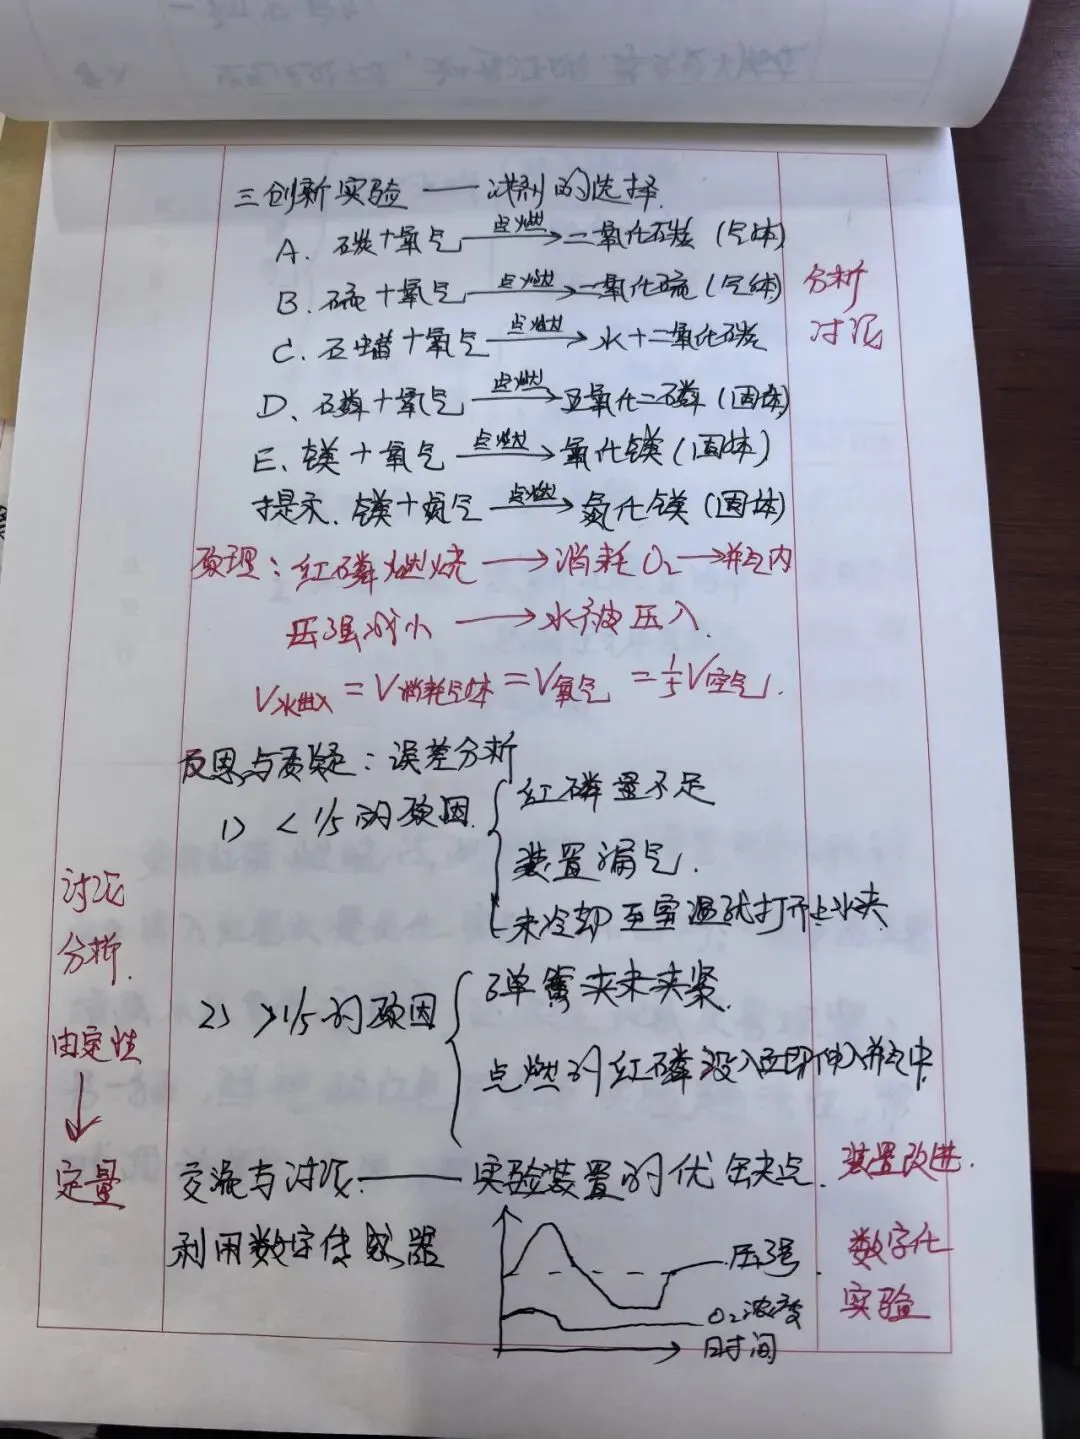 三创新实验——试剂的选择
A. 碳+氧气 点燃→ 二氧化碳(气体)
B. 硫+氧气 点燃→ 二氧化硫(气体)
C. 石蜡+氧气 点燃→ 水+二氧化碳
D、磷+氧气 点燃→ 五氧化二磷(固体)
E、镁+氧气 点燃→ 氧化镁(固体)
提示. 镁+氮气 点燃→ 氮化镁(固体)
分析
讨论
原理:红磷燃烧→消耗O₂→瓶内
压强减小→水被压入.
V水进入=V消耗气体=V氧气=1/5V空气.
反思与质疑:误差分析
1) <1/5的原因.
红磷量不足
装置漏气.
未冷却至室温就打开止水夹
2) >1/5的原因
弹簧夹未夹紧.
点燃的红磷没入立即伸入瓶中.
讨论
分析.
由定性
↓
定量
交流与讨论.——实验装置的优缺点.
装置改进.
利用数字传感器
压强.
O₂浓度
时间
数字化
实验